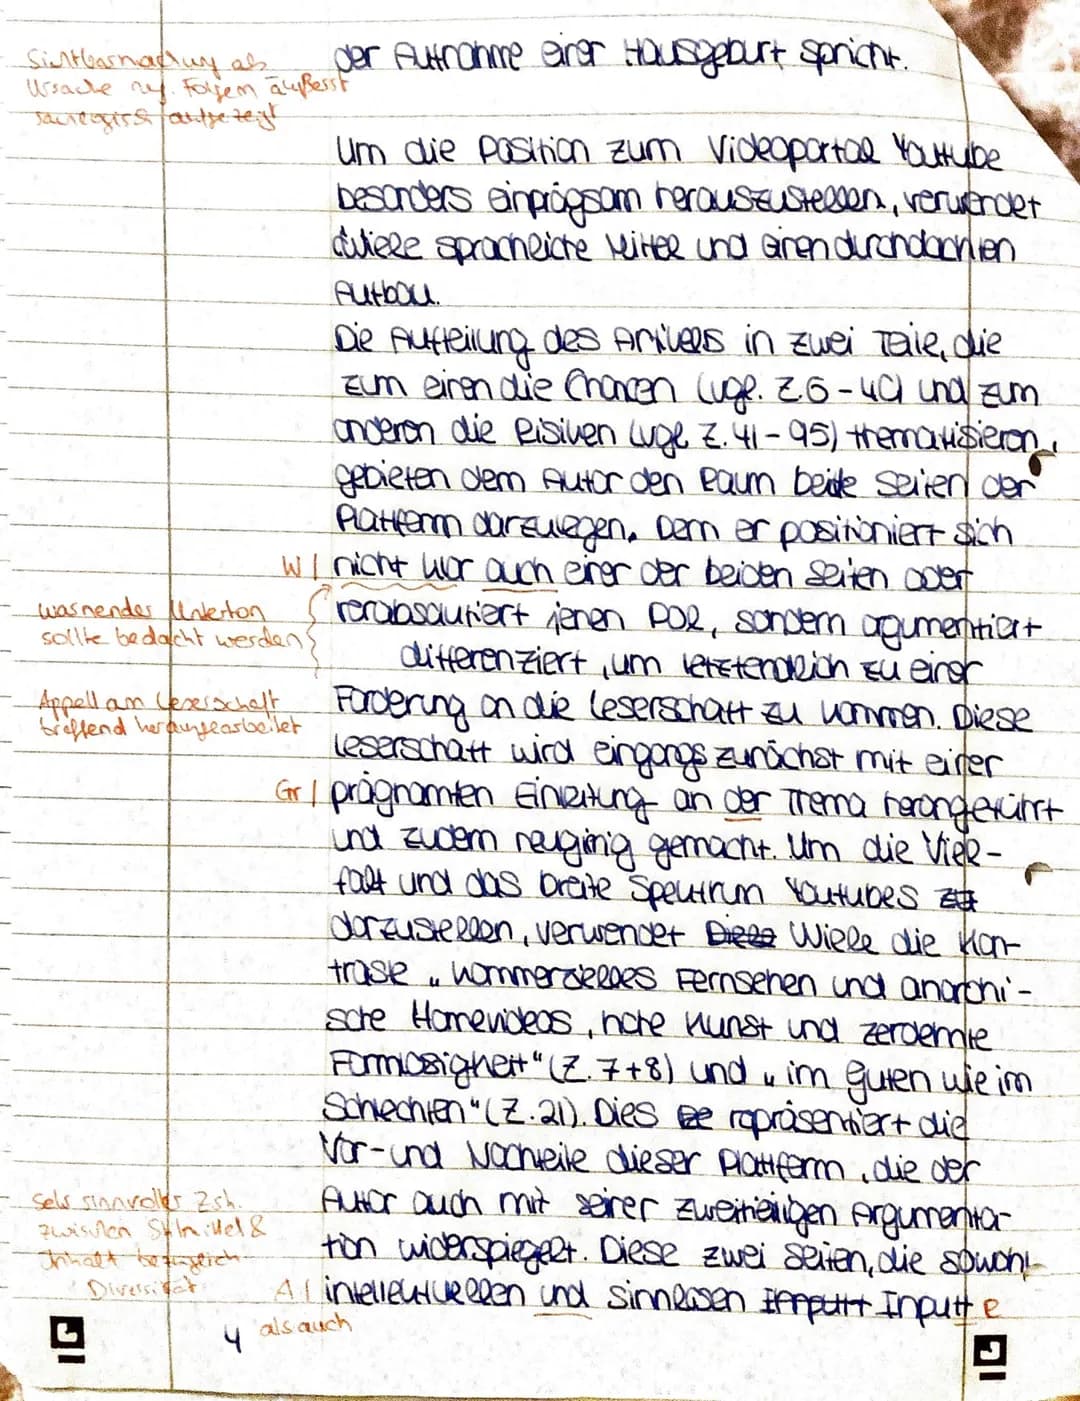 der Aufnahme einer Hausgeburt spricht.
Sichtbarmachung als
Ursache neg. Folgen äußerst
aufgezeigt
Um die Position zum Videoportal Youtube
besonders einprägsam herauszustellen, verwendet
Wiele sprachliche Mittel und einen durchdachten
Aufbau.
Die Aufteilung des Artikels in zwei Teile, die
zum einen die Chancen (vgl. Z.6-40) und zum
anderen die Risiken (vgl. Z. 41-95) thematisieren,
gebieten dem Autor den Raum beide Seiten der
Plattform darzulegen. Denn er positioniert sich
W | nicht klar auch einer der beiden Seiten oder
warnender Unterton
sollte bedacht werden
herabsautiert jenen Pol, sondern argumentiert
differenziert, um letztendlich zu einer
Appell an Leserschaft
treffend herausgearbeitet
Forderung an die Leserschaft zu kommen. Diese
Leserschaft wird eingangs zunächst mit einer
Gr | prägnanten Einleitung an der Thema herangeführt
und zudem neugirig gemacht. Um die Viel-
falt und das breite Spektrum Youtubes
darzustellen, verwendet Diese Wiele die Kon-
traste „kommerzielles Fernsehen und anarchi-
sche Homevideos, hohe Kunst und zerdehnte
Formlosigkeit" (Z. 7+8) und „im guten wie im
Schlechten" (Z.21). Dies repräsentiert die
Vor- und Nachteile dieser Plattform, die der
Sehr sinnvoller Zsh.
zwischen Stilmittel &
Inhalt bezüglich
Diversität
Autor auch mit seiner zweiteiligen Argumenta-
tion widerspiegelt. Diese zwei Seiten, die sowohl
A | intellektuellen und sinnlosen Inputt Inputt e
als auch
4